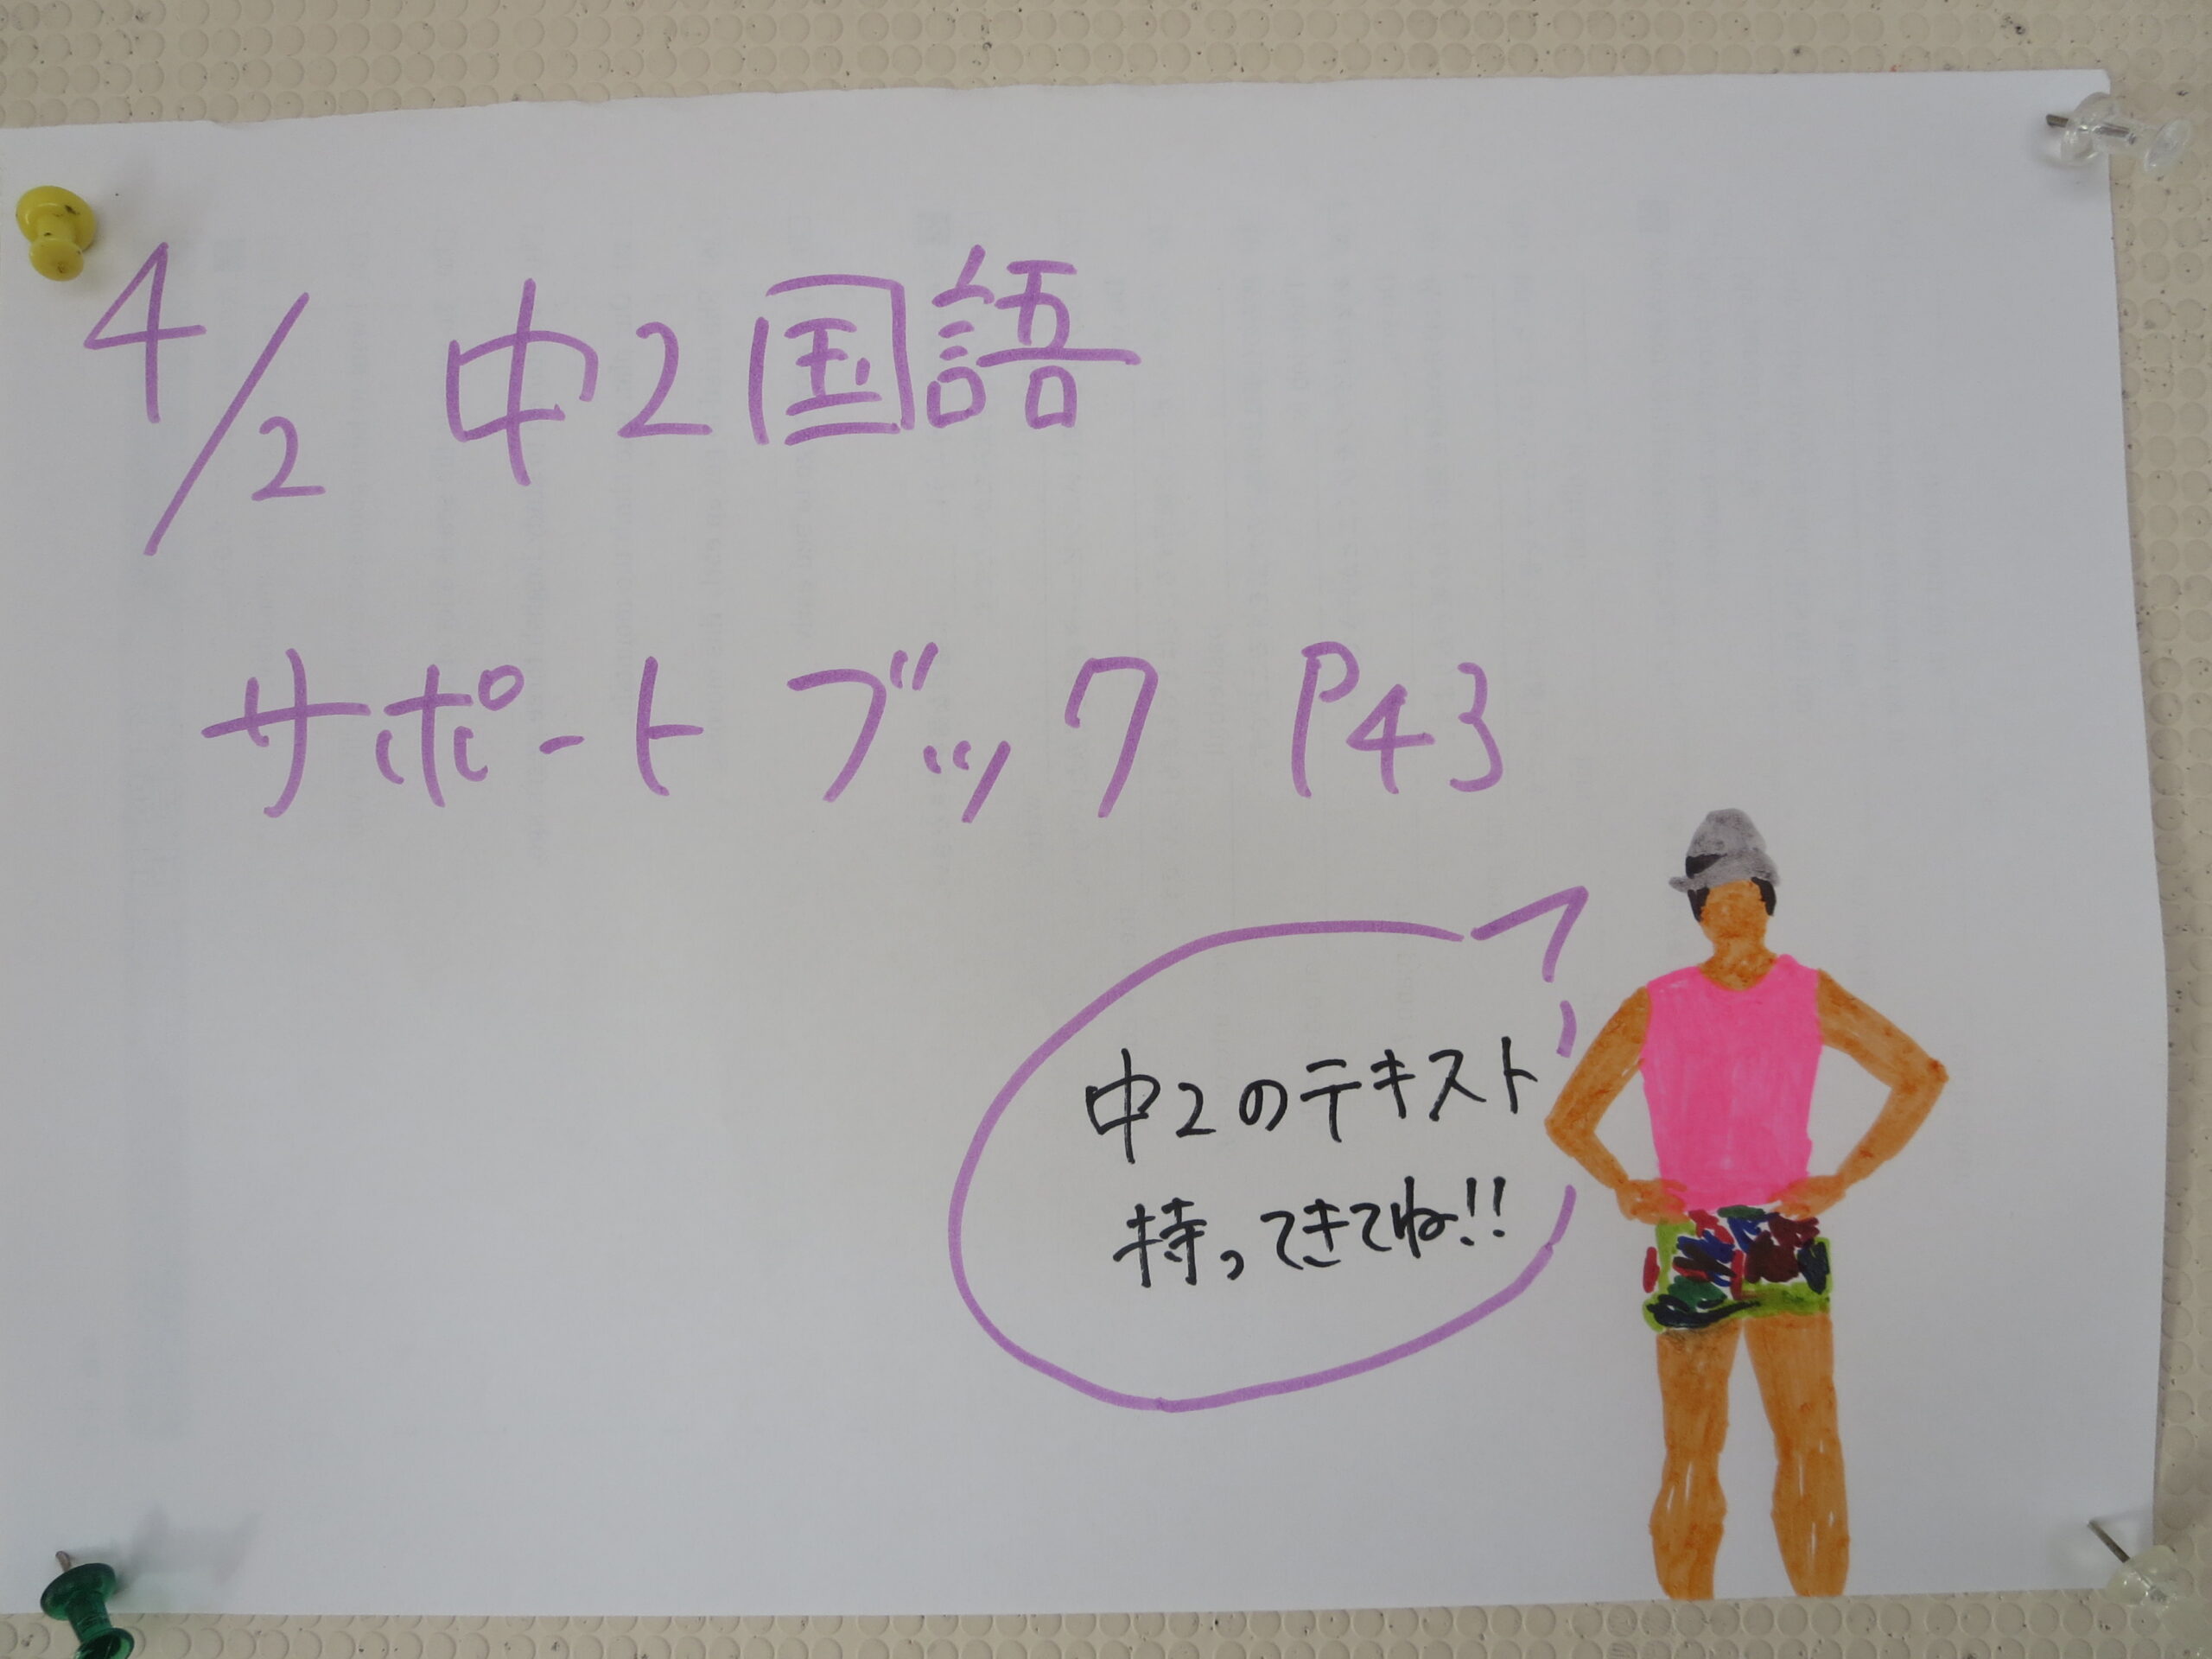 4/2 中2国語
サポートブック P43
中2のテキスト
持ってきてね!!